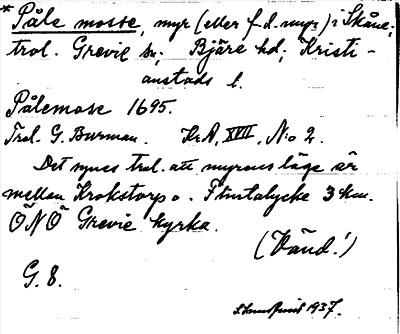 * Påle mosse, myr (eller f.d. myr) i Skåne;
trol. Grevie sn; Bjäre hd; Kristi-
anstads l.
Pålemose 1695.
Trol. G. Burman. KrA, XVII, No 2.
Det synes trol. att myrens läge är
mellan Krokstorp o. Flintalycke 3 km.
ÖNÖ Grevie kyrka.
(Vänd!)
G. 8.
1937.